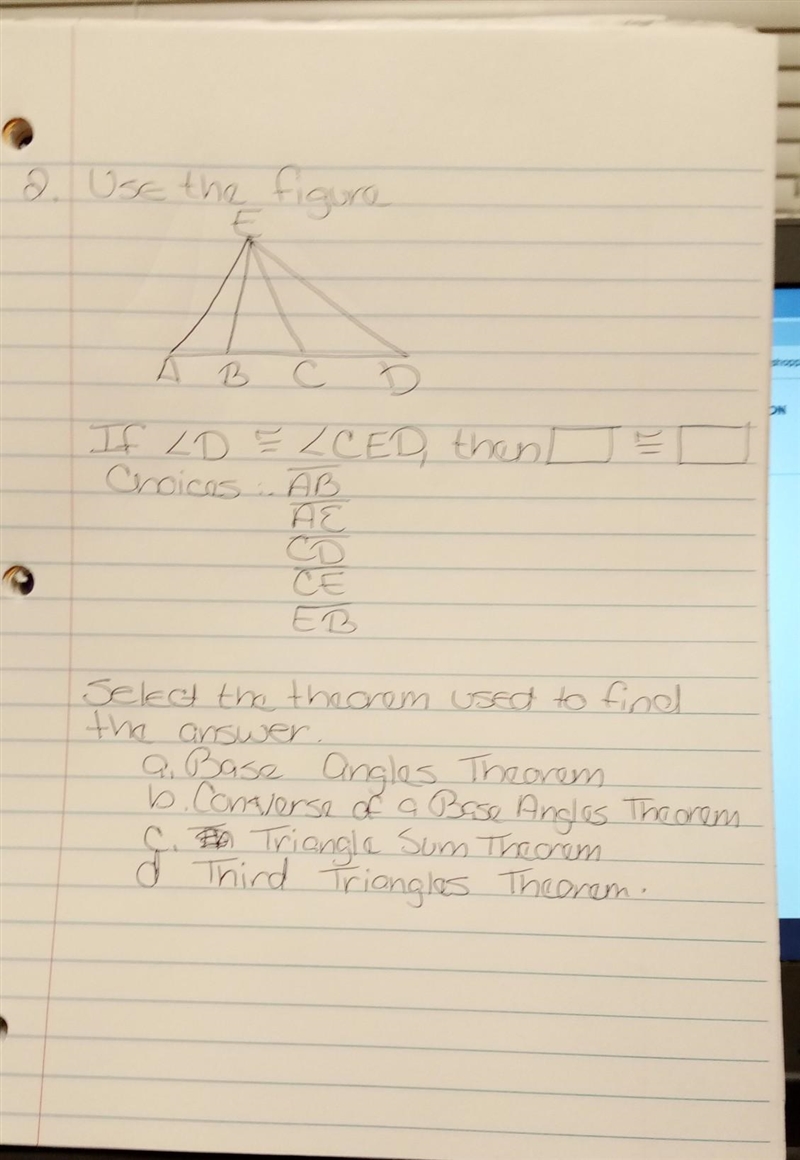 2. Use the figure
E
A B C D
If ∠D ≅ ∠CED, then □ ≅ □
Choices: A̅B̅
A̅E̅
C̅D̅
C̅E̅
E̅B̅
Select the theorem used to find
the answer.
a. Base Angles Theorem
b. Converse of a Base Angles Theorem
c. Triangle Sum Theorem
d Third Triangles Theorem.